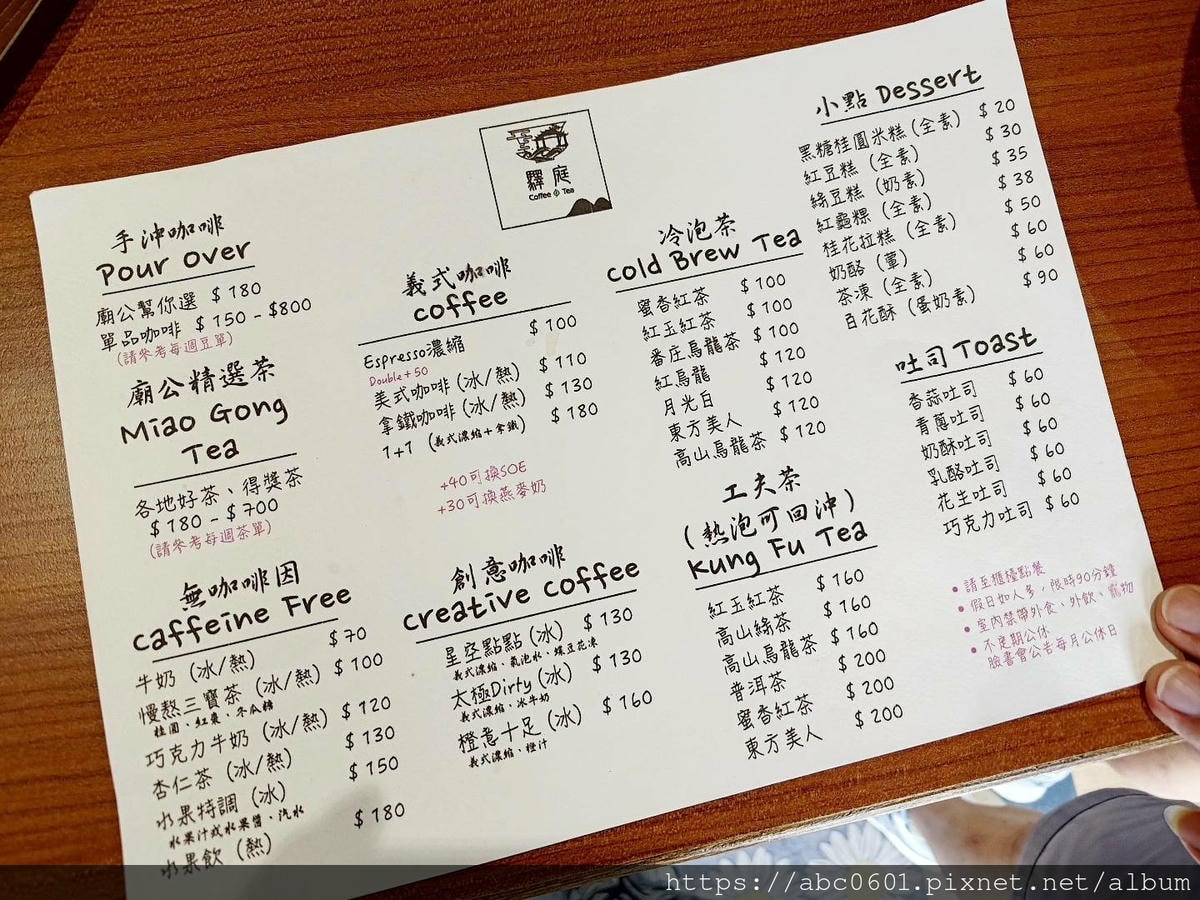 驛庭
Coffee Tea
手沖咖啡
Pour over
廟公幫你選 $180
單品咖啡 $150-$800
(請參考每週豆單)
廟公精選茶
Miao Gong
Tea
各地好茶、得獎茶
$180-$700
(請參考每週茶單)
無咖啡因
caffeine Free
牛奶 (冰/熱) $70
慢熬三寶茶 (冰/熱) $100
桂圓、紅棗、冬瓜糖
巧克力牛奶 (冰/熱) $120
杏仁茶 (冰/熱) $130
水果特調 (冰) $150
水果汁或水果醬、汽水
水果飲 (熱) $180
義式咖啡
coffee
Espresso濃縮 $100
Double+50
美式咖啡 (冰/熱) $110
拿鐵咖啡 (冰/熱) $130
1+1 (義式濃縮+拿鐵) $180
+40可換SOE
+30可換燕麥奶
創意咖啡
creative coffee
星空點點 (冰) $130
義式濃縮、氣泡水、蝶豆花凍
太極Dirty (冰) $130
義式濃縮、冰牛奶
橙意十足 (冰) $160
義式濃縮、橙汁
冷泡茶
cold Brew Tea
蜜香紅茶 $100
紅玉紅茶 $100
番庄烏龍茶 $100
紅烏龍 $120
月光白 $120
東方美人 $120
高山烏龍茶 $120
工夫茶
(熱泡可回沖)
Kung Fu Tea
紅玉紅茶 $160
高山綠茶 $160
高山烏龍茶 $160
普洱茶 $200
蜜香紅茶 $200
東方美人 $200
小點 Dessert
黑糖桂圓米糕 (全素) $20
紅豆糕 (全素) $30
綠豆糕 (奶素) $35
紅龜粿 (全素) $38
桂花拉糕 (全素) $50
奶酪 (葷) $60
茶凍 (全素) $60
百花酥 (蛋奶素) $90
吐司 Toast
香蒜吐司 $60
青蔥吐司 $60
奶酥吐司 $60
乳酪吐司 $60
花生吐司 $60
巧克力吐司 $60
• 請至櫃檯點餐
• 假日如人多，限時90分鐘
• 室內禁帶外食、外飲、寵物
• 不定期公休
臉書會公告每月公休日
https://abc0601.pixnet.net/album